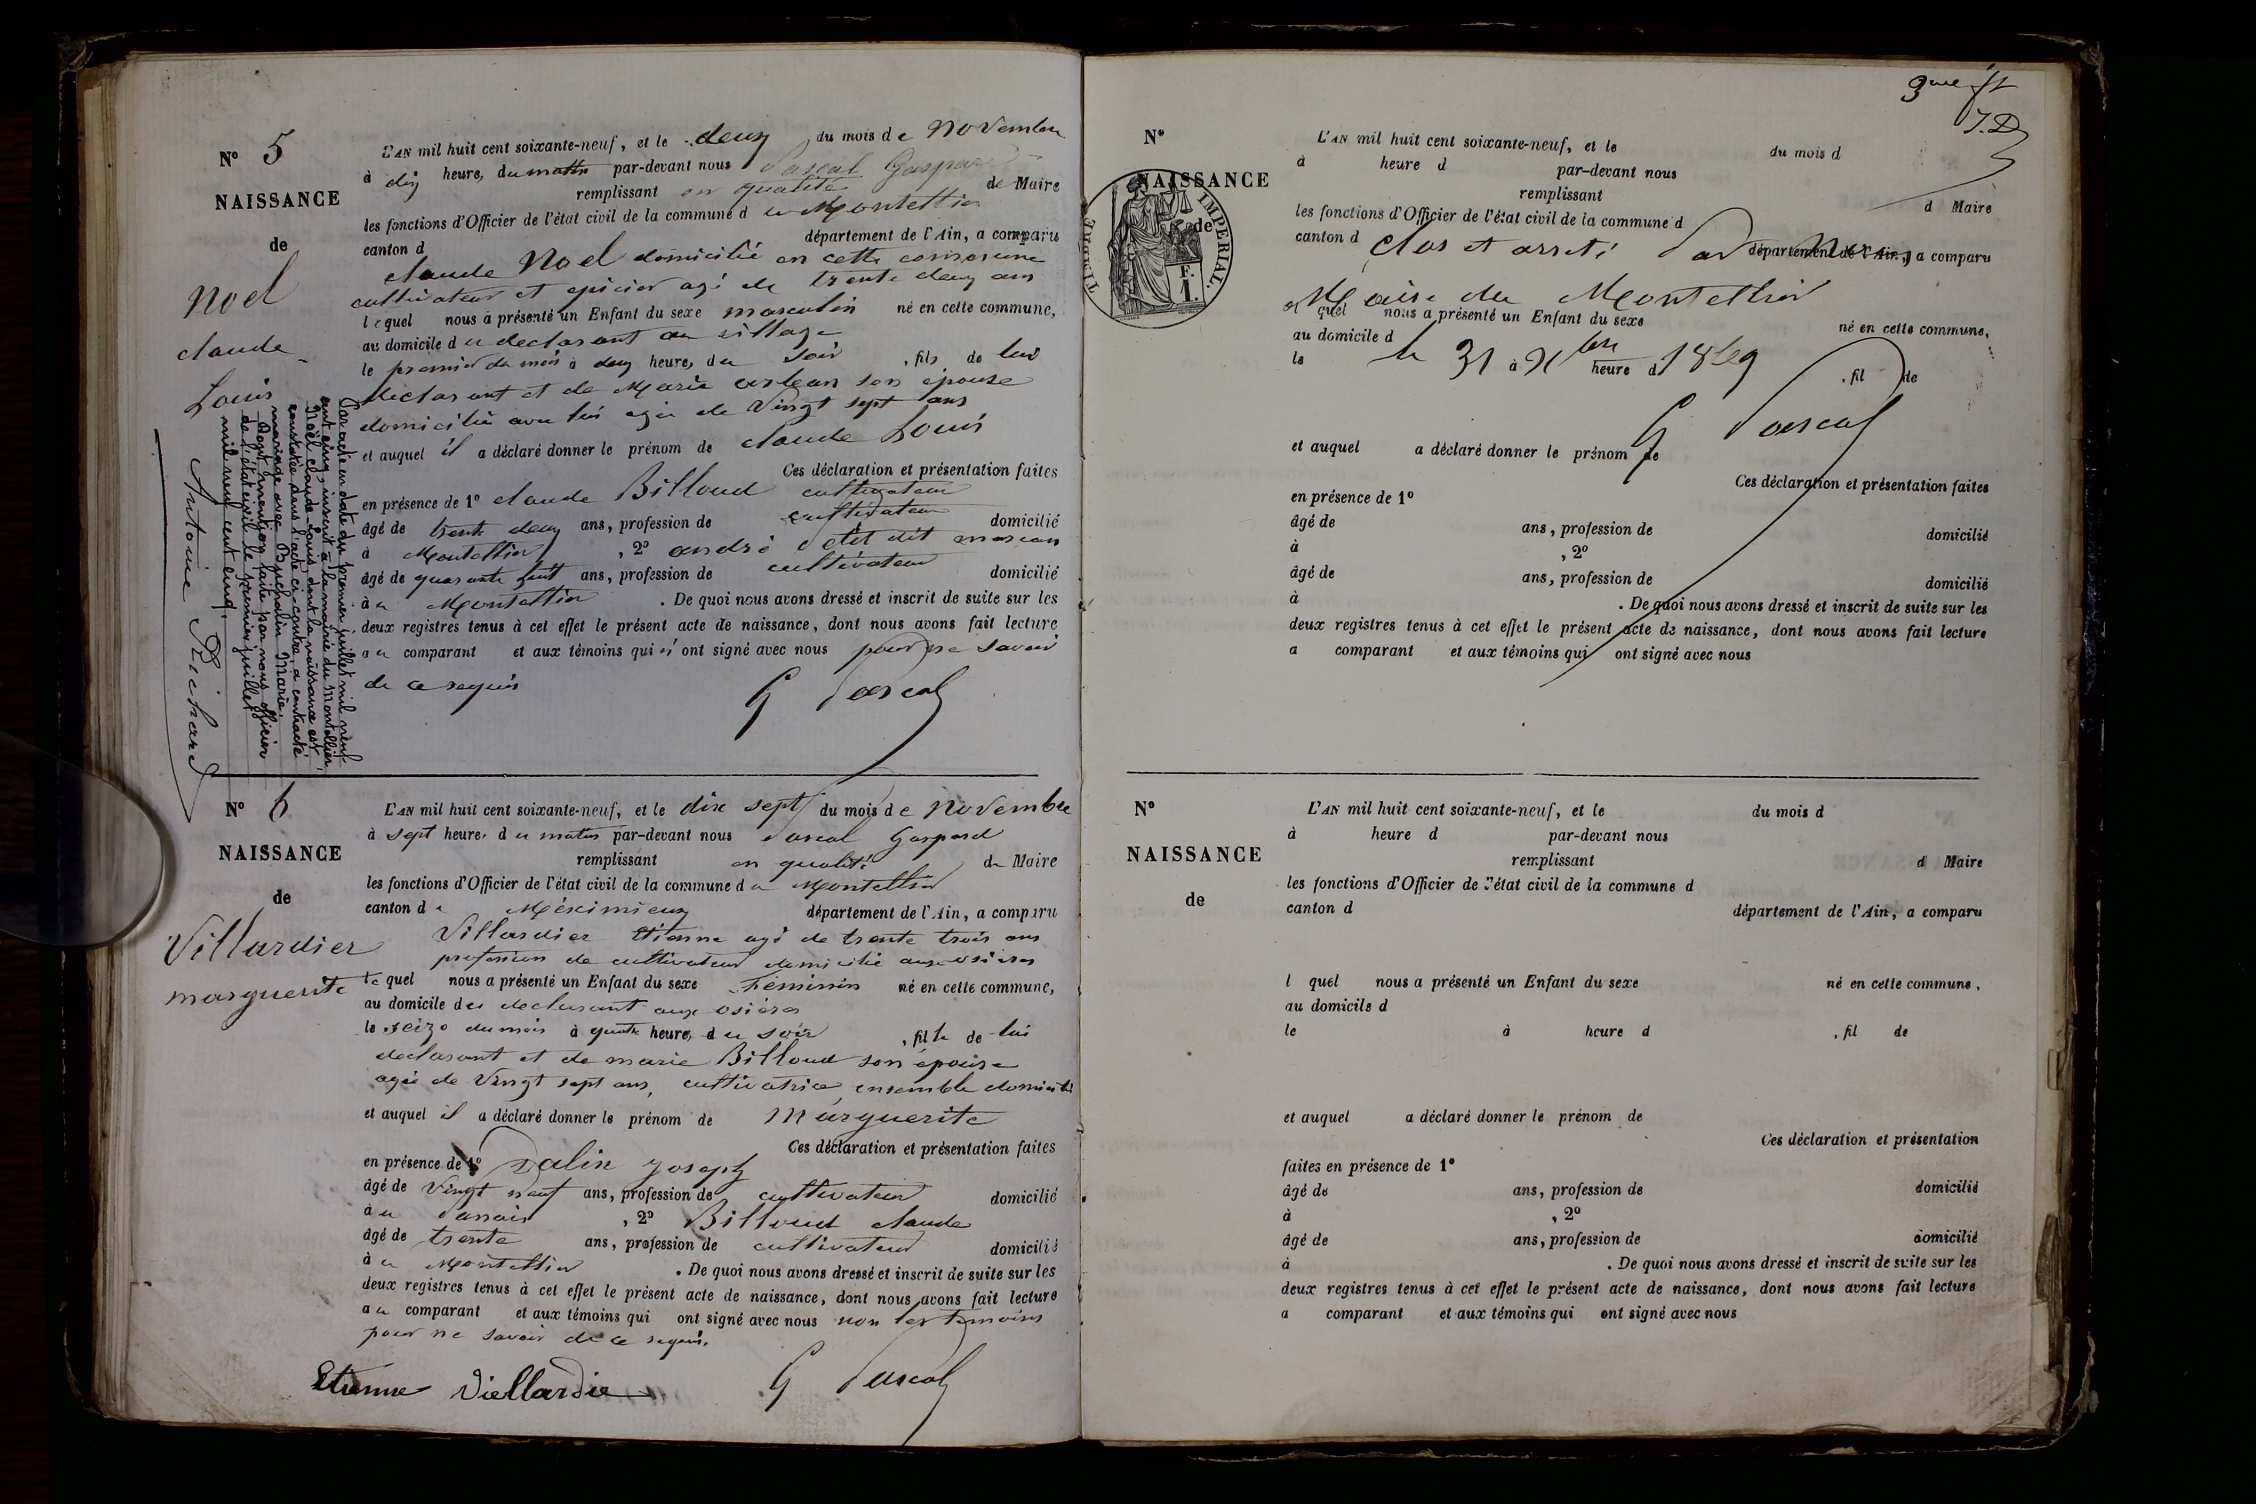 N° 5
NAISSANCE
de
Noel
claude
Louis
L'AN mil huit cent soixante-neuf, et le deux du mois de Novembre
à dix heures, du matin par-devant nous Pascal Gaspard
remplissant en qualité de Maire
les fonctions d'Officier de l'état civil de la commune du Montellier
canton d département de l'Ain, a comparu
claude Noel domicilié en cette commune
cultivateur et epicier agé de trente deux ans
lequel nous a présenté un Enfant du sexe masculin né en cette commune,
au domicile du declarant au village
le premier du mois à deux heures du soir, fils de lui
declarant et de Marie orlean son épouse
domiciliée avec lui agée de Vingt sept ans
et auquel il a déclaré donner le prénom de claude Louis
Ces déclaration et présentation faites
en présence de 1° claude Billoud cultivateur
âgé de trente deux ans, profession de cultivateur domicilié
à Montellier, 2° andré Petit dit moscan
âgé de quarante huit ans, profession de cultivateur domicilié
à u Montellier. De quoi nous avons dressé et inscrit de suite sur les
deux registres tenus à cet effet le présent acte de naissance, dont nous avons fait lecture
au comparant et aux témoins qui n'ont signé avec nous pour ne savoir
de ce requis
G Pascal
Par acte en date du premier juillet mil neuf
cent cinq, inscrit à la mairie du Montellier,
Noël Claude-Louis dont la naissance est
constatée dans l'acte ci-contre, a contracté
mariage avec Buchalin Marie.
Dont mention faite par nous officier
de l'état civil le premier juillet
mil neuf cent cinq.
Antoine Richard
N° 6
NAISSANCE
de
Villardier
marguerite
L'AN mil huit cent soixante-neuf, et le dix sept du mois de Novembre
à sept heures du matin par-devant nous Pascal Gaspard
remplissant en qualité de Maire
les fonctions d'Officier de l'état civil de la commune du Montellier
canton de Méximieux département de l'Ain, a comparu
Villardier Etienne agé de trente trois ans
profession de cultivateur domicilié aux osières
lequel nous a présenté un Enfant du sexe Féminin né en cette commune,
au domicile du declarant aux osières
le seize du mois à quatre heures, du soir, fille de lui
declarant et de marie Billoud son épouse
agée de Vingt sept ans, cultivatrice, ensemble domiciliés
et auquel il a déclaré donner le prénom de Marguerite
Ces déclaration et présentation faites
en présence de 1° Palin Joseph
âgé de Vingt neuf ans, profession de cultivateur domicilié
à u, 2° Billoud claude
âgé de trente ans, profession de cultivateur domicilié
à u Montellier. De quoi nous avons dressé et inscrit de suite sur les
deux registres tenus à cet effet le présent acte de naissance, dont nous avons fait lecture
au comparant et aux témoins qui ont signé avec nous non les temoins
pour ne savoir de ce requis.
Etienne Viellardie G Pascal
3me ft
J.D
N°
NAISSANCE
de
TIMBRE IMPERIAL.
F.
1.
L'AN mil huit cent soixante-neuf, et le du mois d
à heure d par-devant nous
remplissant d Maire
les fonctions d'Officier de l'état civil de la commune d
canton d département de l'Ain, a comparu
Clos et arreté Par Nous
Maire du Montellier
l quel nous a présenté un Enfant du sexe né en cette commune,
au domicile d
le à heure d, fil de
le 31 Xbre 1869
G Pascal
et auquel a déclaré donner le prénom de
Ces déclaration et présentation faites
en présence de 1°
âgé de ans, profession de domicilié
à, 2°
âgé de ans, profession de domicilié
à. De quoi nous avons dressé et inscrit de suite sur les
deux registres tenus à cet effet le présent acte de naissance, dont nous avons fait lecture
a comparant et aux témoins qui ont signé avec nous
N°
NAISSANCE
de
L'AN mil huit cent soixante-neuf, et le du mois d
à heure d par-devant nous
remplissant d Maire
les fonctions d'Officier de l'état civil de la commune d
canton d département de l'Ain, a comparu
l quel nous a présenté un Enfant du sexe né en cette commune,
au domicile d
le à heure d, fil de
et auquel a déclaré donner le prénom de
Ces déclaration et présentation
faites en présence de 1°
âgé de ans, profession de domicilié
à, 2°
âgé de ans, profession de domicilié
à. De quoi nous avons dressé et inscrit de suite sur les
deux registres tenus à cet effet le présent acte de naissance, dont nous avons fait lecture
a comparant et aux témoins qui ont signé avec nous